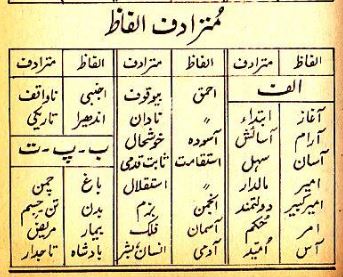 مُترادف الفاظ
الفاظ مترادف الفاظ مترادف الفاظ مترادف
الف
آغاز ابتداء
آرام آسائش
آسان سہل
امیر مالدار
امیرکبیر دولتمند
امر حُکم
آس اُمید
احمق بیوقوف
〃 نادان
آسودہ خوشحال
استقامت ثابت قدمی
〃 استقلال
انجمن بزم
آسمان فلک
آدمی انسان، بشر
اجنبی ناواقف
اندھیرا تاریکی
ب - پ - ت
باغ چمن
بدن تن، جسم
بیمار مریض
بادشاہ تاجدار